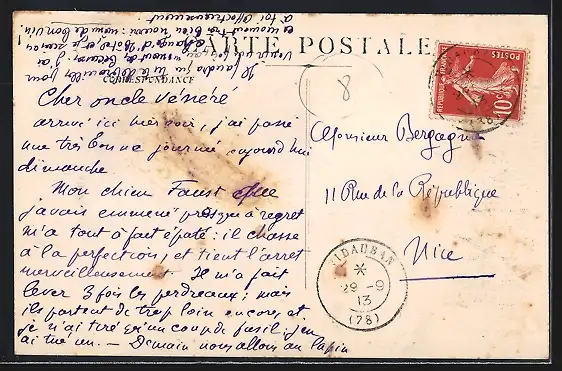 CARTE POSTALE
CORRESPONDANCE
Cher oncle vénéré
arrivé ici hier soir, j'ai passé
une très bonne journée aujourd'hui
dimanche.
Mon chien Faust que
j'avais emmené presque à regret
m'a tout à fait épaté : il chasse
à la perfection, et tient l'arrêt
merveilleusement. Il m'a fait
lever 3 fois les perdreaux ; mais
ils partent de trop loin encore, et
je n'ai tiré qu'un coup de fusil ; j'en
ai tué un. — Demain nous allons au lapin
Il faudra
d'hôtel et je suis
en ce moment très bien nourri :
à toi affectueusement
8
Monsieur Bergagna
11 Rue de la République
Nice
POSTES
REPUBLIQUE FRANÇAISE
10c
VIDAUBAN
29 -9
13
(78)